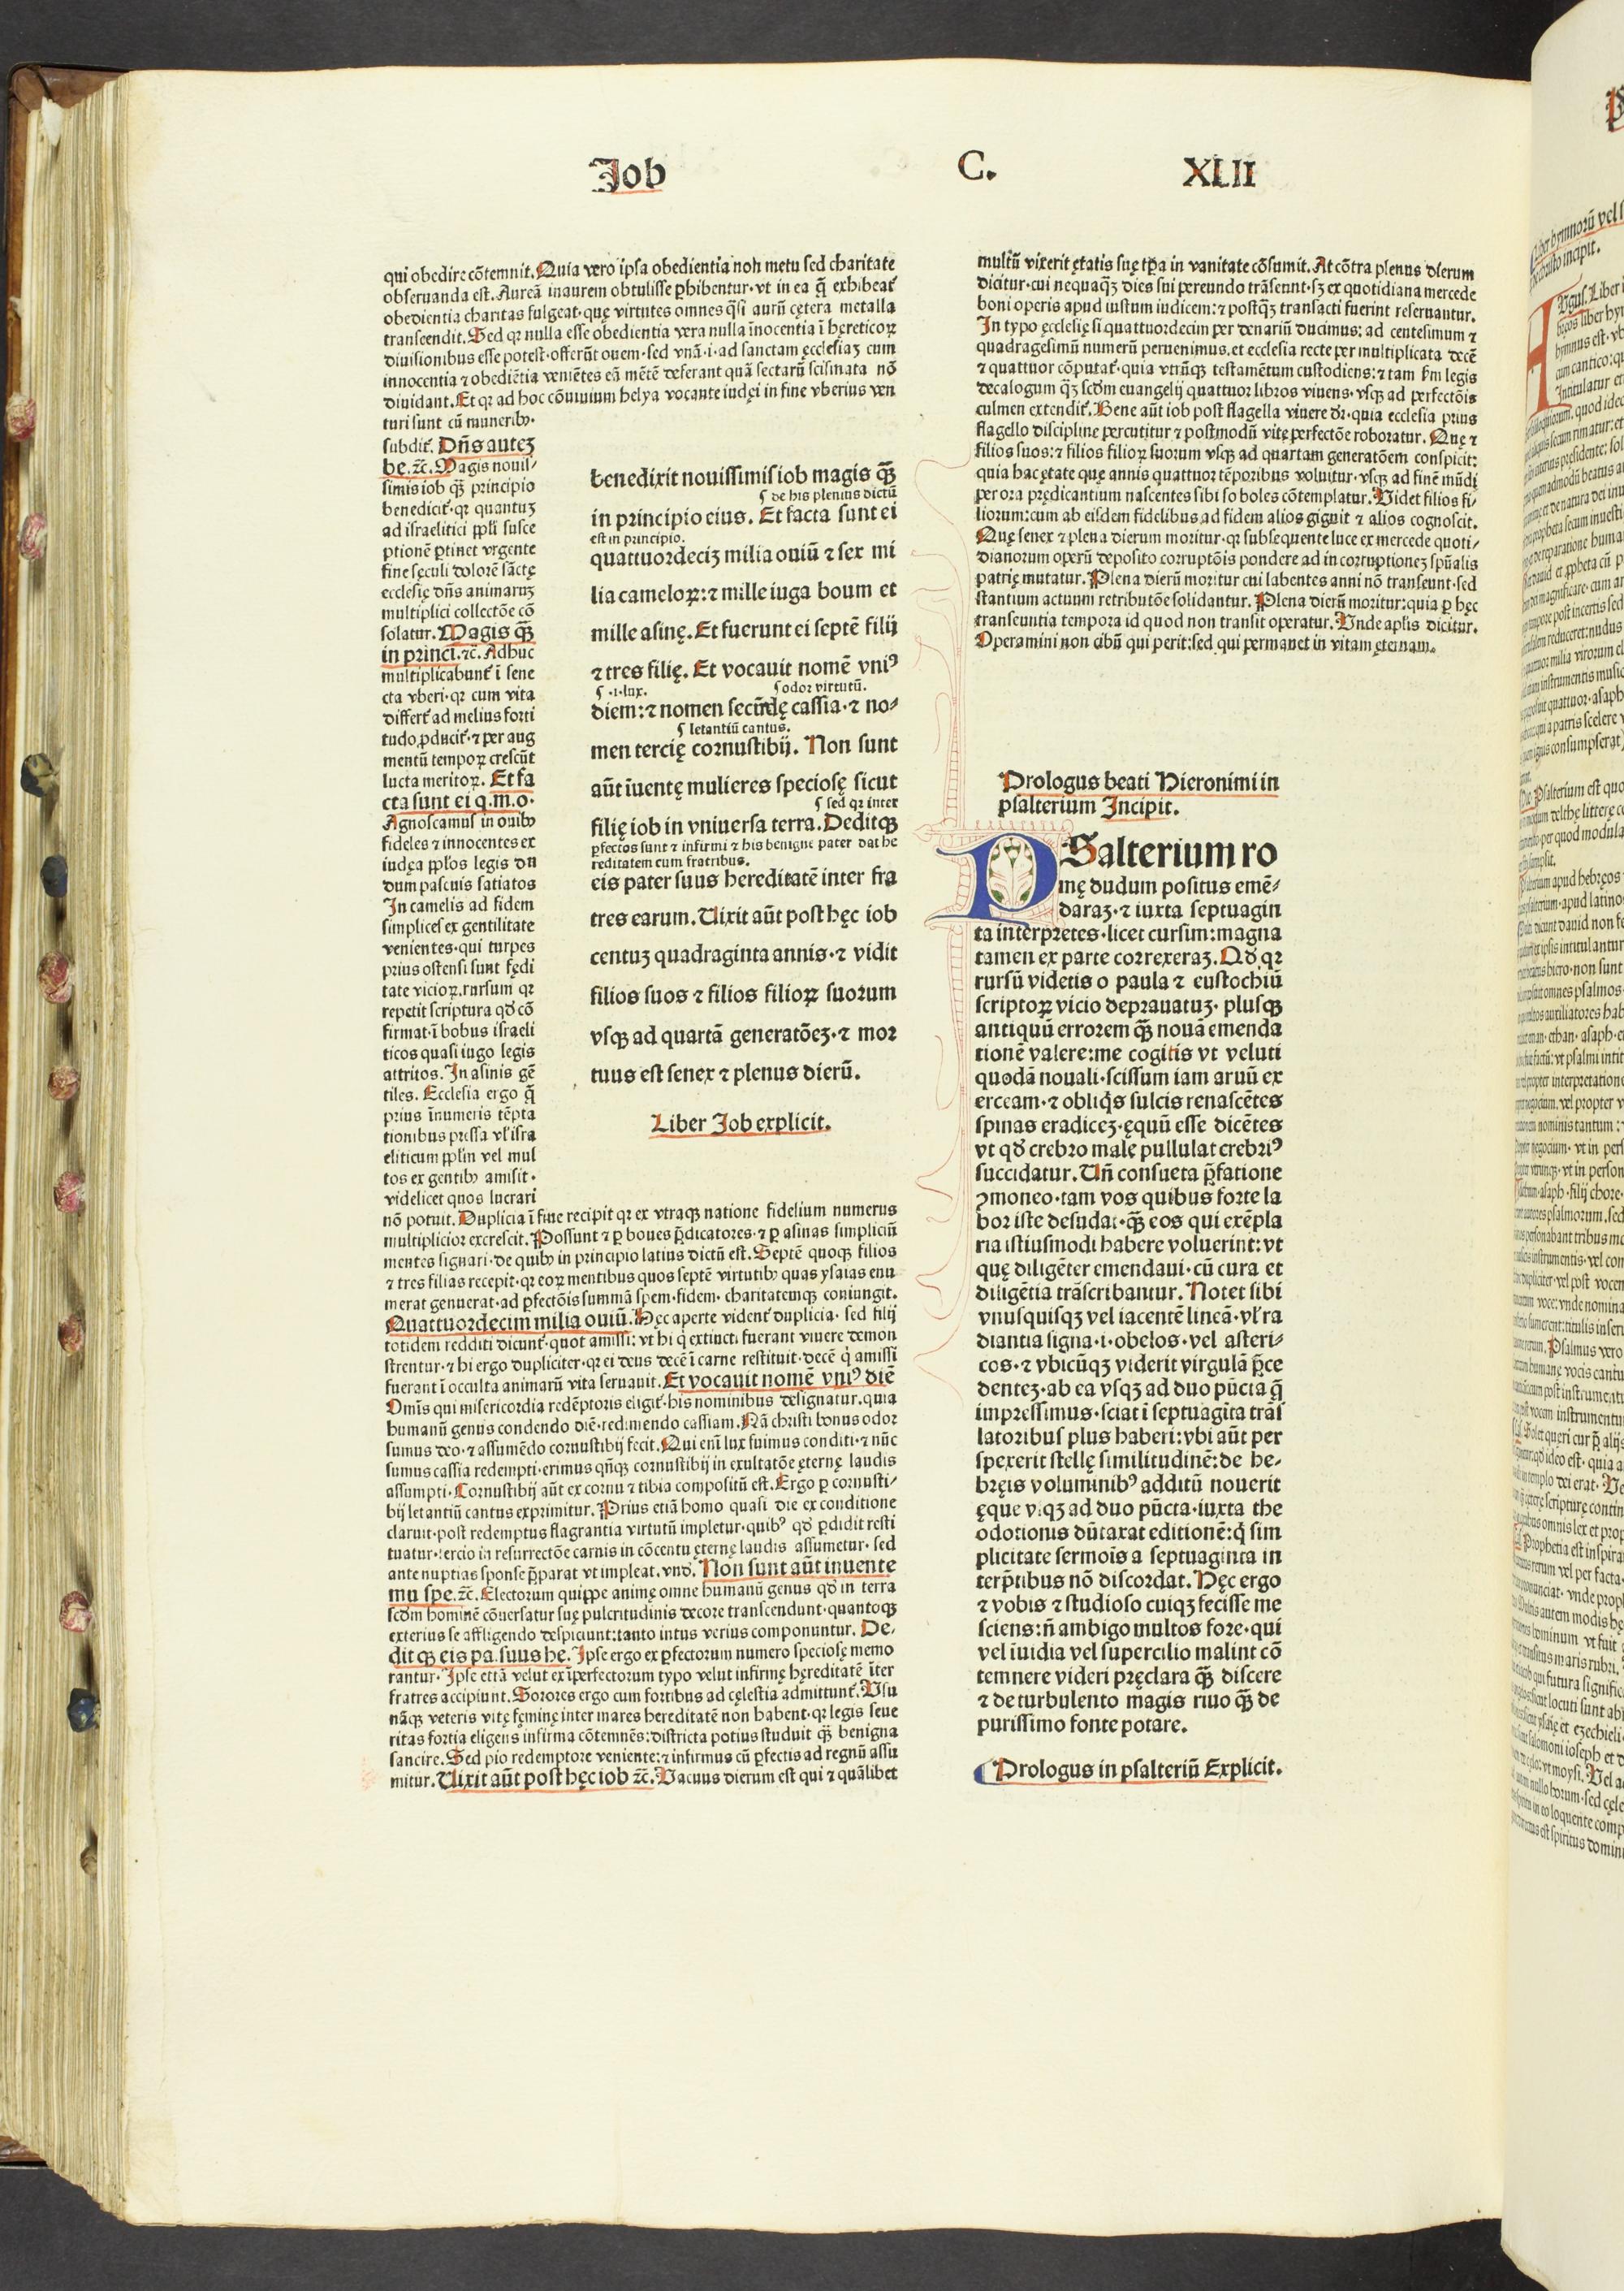 Job C. XLII
qui obedire cõtemnit. Quia vero ipsa obedientia non metu sed charitate
obseruanda est. Aureã inaurem obtulisse ꝑhibentur· vt in ea q̃ exhibeat᷑
obedientia charitas fulgeat· quę virtutes omnes q̃si aurũ cętera metalla
transcendit. Sed qꝛ nulla esse obedientia vera nulla ĩnocentia ĩ hereticoꝝ
diuisionibus esse potest· offerũt ouem· sed vnã· i· ad sanctam ęcclesiaʒ cum
innocentia ⁊ obediẽtia veniẽtes eã mẽtẽ deferant quã sectarũ scismata nõ
diuidant. Et qꝛ ad hoc cõuiuium helya vocante iudęi in fine vberius ven
turi sunt cũ munerib⁹·
subdit᷑. Dñs auteʒ
be. ⁊c̃. Magis nouis/
simis iob q̃ʒ principio
benedicit᷑· qꝛ quantuʒ
ad israelitici ppl̃i susce
ptionẽ ꝑtinet vrgente
fine sęculi dolorẽ sãctę
ecclesię dñs animaruʒ
multiplici collectõe cõ
solatur. Magis q̃ʒ
in princi. ⁊c̃. Adhuc
multiplicabunt᷑ ĩ sene
cta vberi· qꝛ cum vita
differt᷑ ad melius forti
tudo ꝓducit᷑· ⁊ per aug
mentũ tempoꝝ crescũt
lucta meritoꝝ. Et fa
cta sunt ei q. m. o·
Agnoscamus in ouib⁹
fideles ⁊ innocentes ex
iudęa pp̃los legis dn
dum pascuis satiatos
In camelis ad fidem
simplices ex gentilitate
venientes· qui turpes
prius ostensi sunt fędi
tate vicioꝝ. rursum qꝛ
repetit scriptura qđ cõ
firmat· ĩ bobus israeli
ticos quasi iugo legis
attritos. In asinis gẽ
tiles. Ecclesia ergo q̃
prius ĩnumeris tẽpta
tionibus pressa vl̃ isra
eliticum ppl̃m vel mul
tos ex gentib⁹ amisit·
videlicet quos lucrari
nõ potuit. Duplicia ĩ fine recipit qꝛ ex vtraqʒ natione fidelium numerus
multiplicior excrescit. Possunt ⁊ ꝑ boues p̃dicatores· ⁊ ꝑ asinas simpliciũ
mentes signari· de quib⁹ in principio latius dictũ est. Septẽ quoqʒ filios
⁊ tres filias recepit· qꝛ eoꝝ mentibus quos septẽ virtutib⁹ quas ysaias enu
merat genuerat· ad ꝑfectõis summã spem· fidem· charitatemqʒ coniungit.
Quattuordecim milia ouiũ. Hęc aperte vident᷑ duplicia· sed filij
totidem redditi dicunt᷑· quot amissi: vt hi q̃ extincti fuerant viuere demon
strentur· ⁊ hi ergo dupliciter· qꝛ ei deus decẽ ĩ carne restituit· decẽ q̃ amissi
fuerant ĩ occulta animarũ vita seruauit. Et vocauit nomẽ vni⁹ diẽ
Omĩs qui misericordia redẽptoris eligit᷑· his nominibus designatur. quia
humanũ genus condendo diẽ· redimendo cassiam. Nã christi bonus odor
sumus deo· ⁊ assumẽdo cornustibij fecit. Qui enĩ lux fuimus conditi· ⁊ nũc
sumus cassia redempti· erimus qñqʒ cornustibij in exultatõe ęternę laudis
assumpti· Cornustibij aũt ex cornu ⁊ tibia compositũ est. Ergo ꝑ cornusti/
bij letantiũ cantus exprimitur. Prius etiã homo quasi die ex conditione
claruit· post redemptus flagrantia virtutũ impletur· quib⁹ qđ ꝑdidit resti
tuatur· tercio in resurrectõe carnis in cõcentu ęternę laudis assumetur· sed
ante nuptias sponse p̃parat vt impleat. vnđ. Non sunt aũt inuente
mu spe. ⁊c̃. Electorum quippe animę omne humanũ genus qđ in terra
scđm hominẽ cõuersatur suę pulcritudinis decore transcendunt· quantoqʒ
exterius se affligendo despiciunt: tanto intus verius componuntur. De/
dit qʒ eis pa. suus he. Ipse ergo ex ꝑfectorum numero speciosę memo
rantur· Ipse etiã velut ex ĩperfectorum typo velut infirmę hęreditatẽ ĩter
fratres accipiunt. Sorores ergo cum fortibus ad cęlestia admittunt᷑. Usu
nãqʒ veteris vitę fęminę inter mares hereditatẽ non habent· qꝛ legis seue
ritas fortia eligens infirma cõtemnẽs: districta potius studuit q̃ʒ benigna
sancire. Sed pio redemptore veniente: ⁊ infirmus cũ ꝑfectis ad regnũ assu
mitur. Uixit aũt post hęc iob ⁊c̃. Vacuus dierum est qui ⁊ quãlibet
benedixit nouissimis iob magis q̃ʒ
¶ de his plenius dictũ
in principio eius. Et facta sunt ei
est in principio.
quattuordeciʒ milia ouiũ ⁊ sex mi
lia cameloꝝ: ⁊ mille iuga boum et
mille asinę. Et fuerunt ei septẽ filij
⁊ tres filię. Et vocauit nomẽ vni⁹
¶ ·i· lux. ¶ odor virtutũ.
diem: ⁊ nomen secũdę cassia· ⁊ no/
¶ letantiũ cantus.
men tercię cornustibij. Non sunt
aũt ĩuentę mulieres speciosę sicut
¶ sed qꝛ inter
filię iob in vniuersa terra. Deditqʒ
ꝑfectos sunt ⁊ infirmi ⁊ his benigne pater dat he
reditatem cum fratribus.
eis pater suus hereditatẽ inter fra
tres earum. Uixit aũt post hęc iob
centuʒ quadraginta annis· ⁊ vidit
filios suos ⁊ filios filioꝝ suorum
vsqʒ ad quartã generatõeʒ· ⁊ mor
tuus est senex ⁊ plenus dierũ.
Liber Job explicit.
multũ vixerit ętatis suę tp̃a in vanitate cõsumit. At cõtra plenus dierum
dicitur· cui nequaqʒ dies sui pereundo trãseunt· sʒ ex quotidiana mercede
boni operis apud iustum iudicem: ⁊ postqʒ transacti fuerint reseruantur.
In typo ęcclesię si quattuordecim per denariũ ducimus: ad centesimum ⁊
quadragesimũ numerũ peruenimus. et ecclesia recte per multiplicata decẽ
⁊ quattuor cõputat᷑· quia vtrũqʒ testamẽtum custodiens: ⁊ tam ẜm legis
decalogum q̃ʒ scđm euangelij quattuor libros viuens· vsqʒ ad perfectõis
culmen extendit᷑. Bene aũt iob post flagella viuere dr̃· quia ecclesia prius
flagello discipline percutitur ⁊ postmodũ vitę perfectõe roboratur. Quę ⁊
filios suos: ⁊ filios filioꝝ suorum vsqʒ ad quartam generatõem conspicit:
quia hac ętate que annis quattuor tẽporibus voluitur· vsqʒ ad finẽ mũdi
per ora prędicantium nascentes sibi so boles cõtemplatur. Videt filios fi/
liorum: cum ab eisdem fidelibus ad fidem alios gignit ⁊ alios cognoscit.
Quę senex ⁊ plena dierum moritur· qꝛ subsequente luce ex mercede quoti/
dianorum operũ deposito corruptõis pondere ad incorruptioneʒ spũalis
patrię mutatur. Plena dierũ moritur cui labentes anni nõ transeunt· sed
stantium actuum retributõe solidantur. Plena dierũ moritur: quia ꝑ hęc
transeuntia tempora id quod non transit operatur. Unde apl̃s dicitur.
Operamini non cibũ qui perit: sed qui permanet in vitam ęternam.
Prologus beati Hieronimi in
psalterium Incipit.
PSalterium ro
mę dudum positus emẽ/
daraʒ· ⁊ iuxta septuagin
ta interpretes· licet cursim: magna
tamen ex parte correxeraʒ. Qđ qꝛ
rursũ videtis o paula ⁊ eustochiũ
scriptoꝝ vicio deprauatuʒ· plusqʒ
antiquũ errorem q̃ʒ nouã emenda
tionẽ valere: me cogitis vt veluti
quodã nouali· scissum iam aruũ ex
erceam· ⁊ obliq̃s sulcis renascẽtes
spinas eradiceʒ· ęquũ esse dicẽtes
vt qđ crebro male pullulat crebri⁹
succidatur. Uñ consueta p̃fatione
ꝯmoneo· tam vos quibus forte la
bor iste desudat· q̃ʒ eos qui exẽpla
ria istiusmodi habere voluerint: vt
quę diligẽter emendaui· cũ cura et
diligẽtia trãscribantur. Notet sibi
vnusquisqʒ vel iacentẽ lineã· vl̃ ra
diantia signa· i· obelos· vel asteri/
cos· ⁊ vbicũqʒ viderit virgulã p̃ce
denteʒ· ab ea vsqʒ ad duo pũcta q̃
impressimus· sciat ĩ septuagĩta trãs
latoribus plus haberi: vbi aũt per
spexerit stellę similitudinẽ: de he/
bręis voluminib⁹ additũ nouerit
ęque vsqʒ ad duo pũcta· iuxta the
odotionis dũtaxat editionẽ: q̃ sim
plicitate sermoĩs a septuaginta in
terp̃tibus nõ discordat. Hęc ergo
⁊ vobis ⁊ studioso cuiqʒ fecisse me
sciens: ñ ambigo multos fore· qui
vel ĩuidia vel supercilio malint cõ
temnere videri pręclara q̃ʒ discere
⁊ de turbulento magis riuo q̃ʒ de
purissimo fonte potare.
Prologus in psalteriũ Explicit.